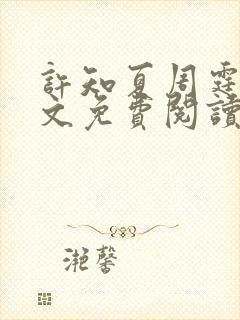 許知夏周霆
文免費閱讀
滟馨